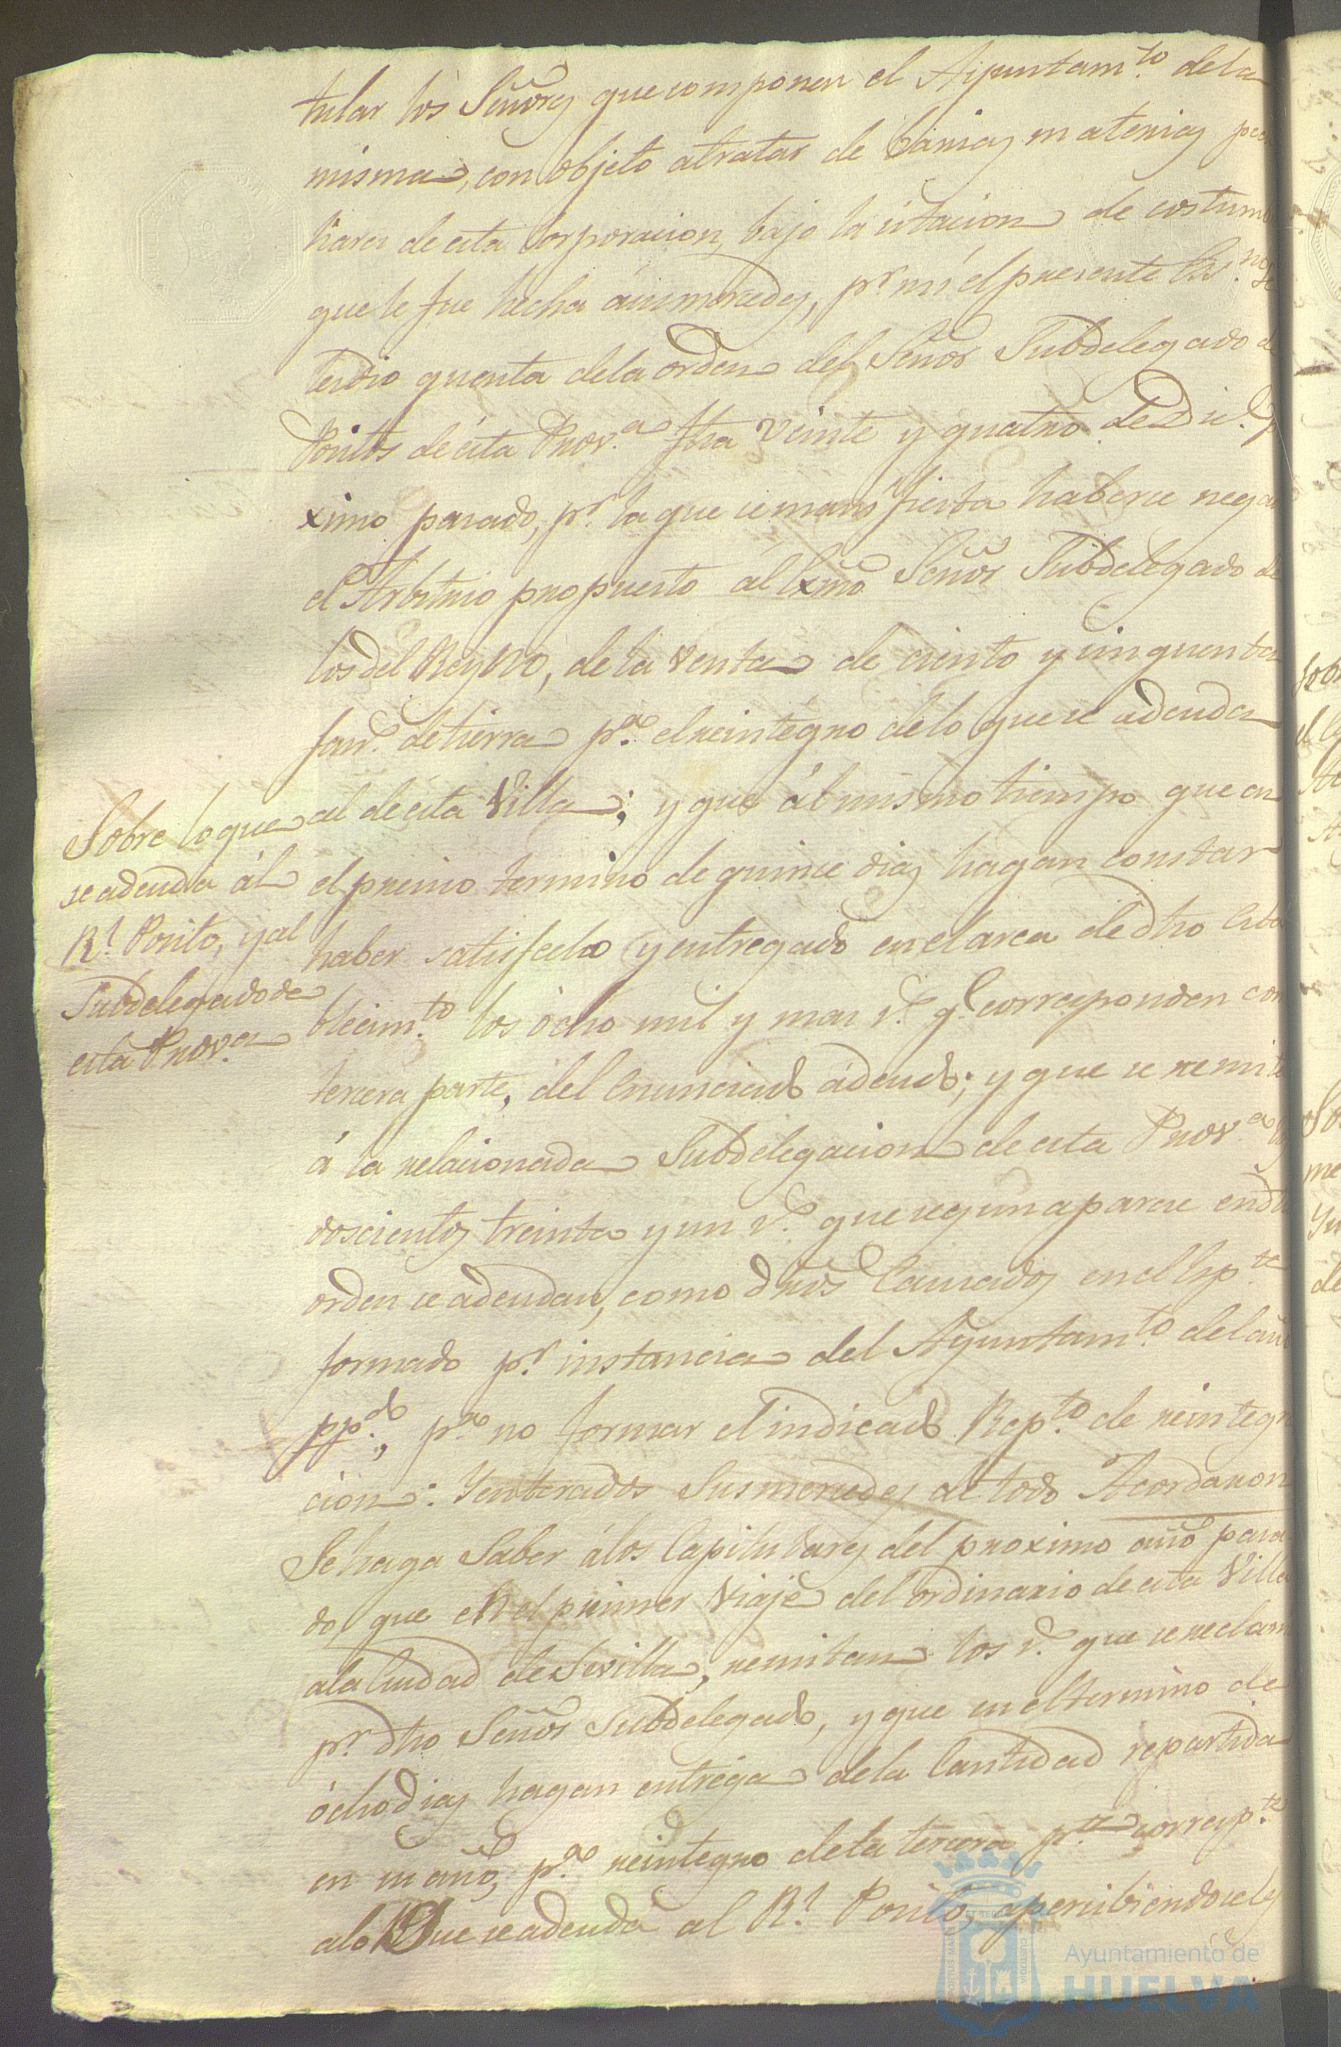 tular los Señores que componen el Ayuntam.to de la
misma, con objeto a tratar de barias materias pecu
liares de esta Corporacion, bajo la citacion de costum
que le fue hecha ásus mercedes, p.r mi el presente Es.no se
les dio quenta de la orden del Señor Subdelegado de
Positos de ésta Prov.a fha veinte y quatro de Dic.e p
ximo pasado, p.r la que se manifiesta haberse negado
el Arbitrio propuesto al Exmo Señor Subdelegado de
los del Reyno, de la venta de ciento y cinquenta
fan.s de tierra p.a el reintegro de lo que se adeuda
al de ésta Villa; y que ál mismo tiempo que en
el preciso termino de quince dias hagan constar
haber satisfecho y entregado en el arca de dho Esta
blecim.to los ócho mil y mas r.s q.e corresponden con
tercera parte, del Enunciado ádeudo; y que se remita
á la relacionada Subdelegacion de esta Prov.a los
doscientos treinta y un r.s que segun aparece en dha
orden se adeudan, como dros Causados en el Exp.te
formado p.r instancia del Ayuntam.to del año
pp.do, p.a no formar el indicado Rep.to de reintegra
cion: Y enterados Sus mercedes de todo Acordaron
Se haga Saber á los Capitulares del proximo año pasa
do, que en el primer Viaje del ordinario de esta Villa
a la Ciudad de Sevilla, remitan los r.s que se reclam
p.r dho Señor Subdelegado, y que en el termino de
ócho dias hagan entrega de la Cantidad repartida
en su año, p.a reintegro de la tercera p.te corresp.te
alo que se adeuda al R.l Posito, apercibiendoseles
Sobre lo que
se adeuda ál
R.l Posito, y al
Subdelegado de
esta Prov.a
Ayuntamiento de
HUELVA